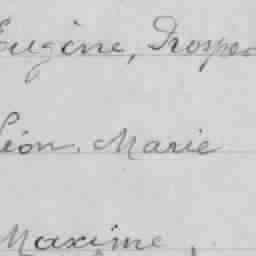 Eugène, Prosper
Léon, Marie
Maxime,